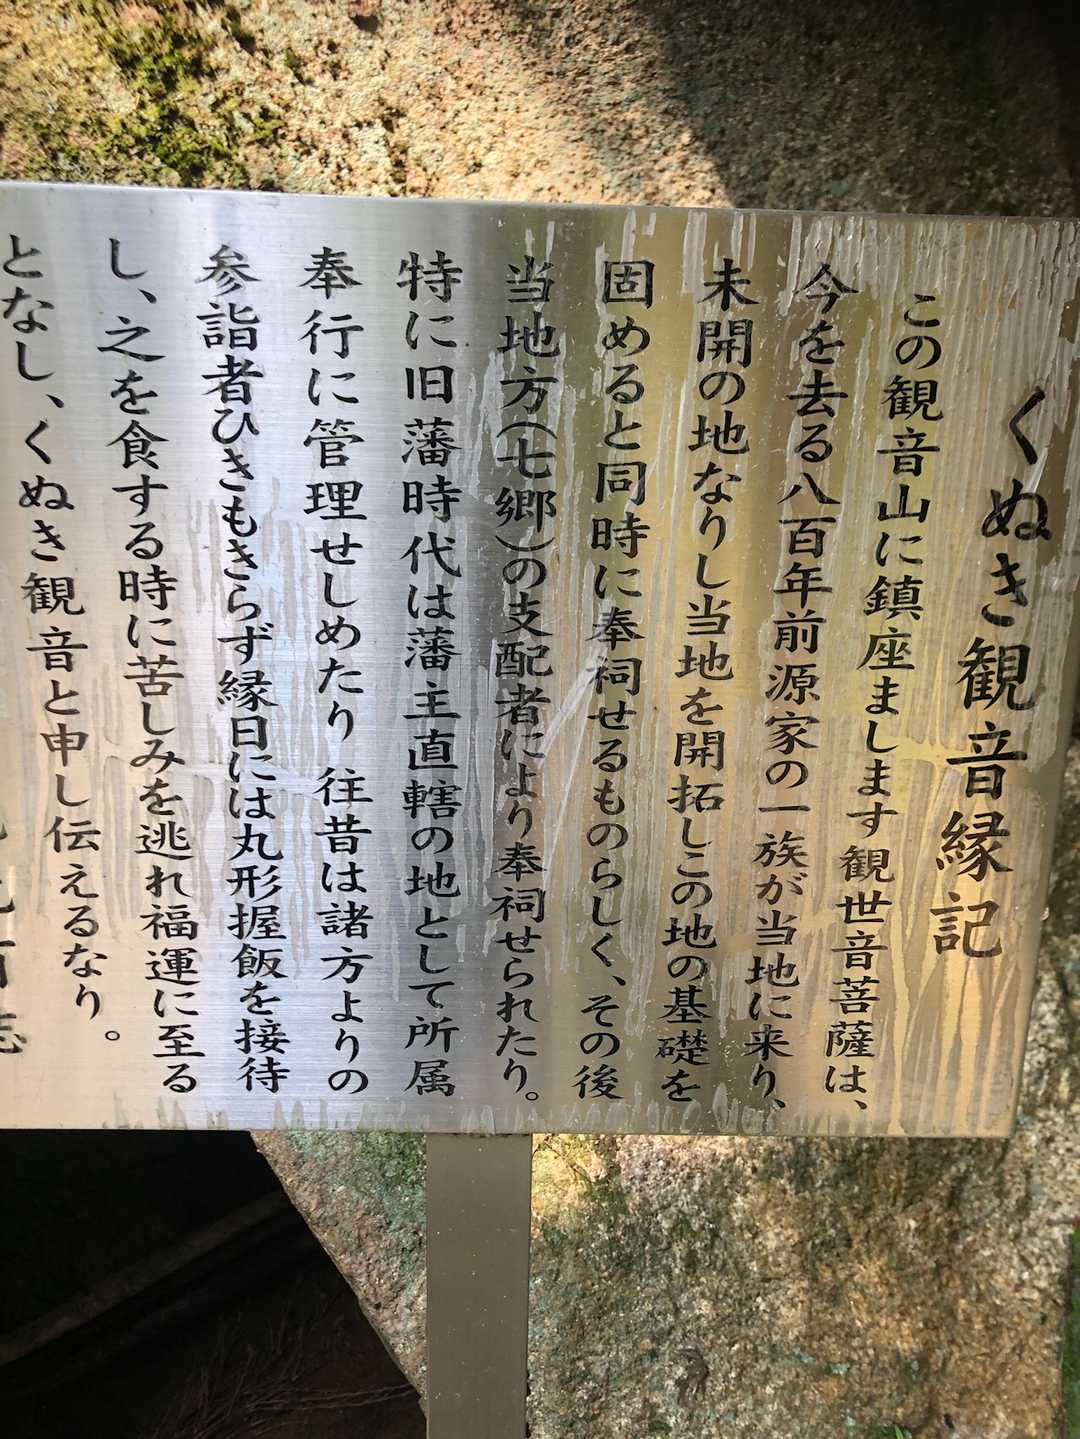 くぬき観音縁記
この観音山に鎮座まします観世音菩薩は、
今を去る八百年前源家の一族が当地に来り、
未開の地なりし当地を開拓しこの地の基礎を
固めると同時に奉祠せるものらしく、その後
当地方(七郷)の支配者により奉祠せられたり。
特に旧藩時代は藩主直轄の地として所属
奉行に管理せしめたり 往昔は諸方よりの
参詣者ひきもきらず縁日には丸形握飯を接待
し、之を食する時に苦しみを逃れ福運に至る
となし、くぬき観音と申し伝えるなり。